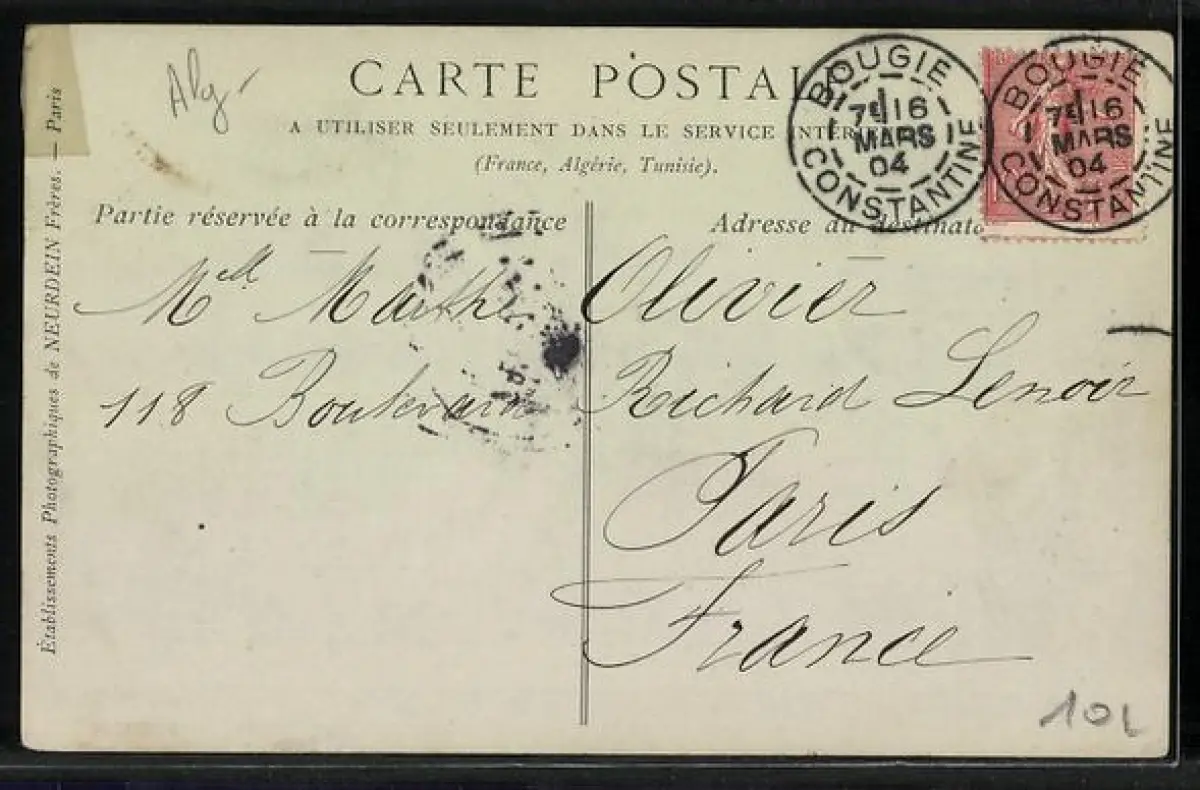 Alg-
CARTE POSTALE
A UTILISER SEULEMENT DANS LE SERVICE INTÉRIEUR
(France, Algérie, Tunisie).
BOUGIE
7E 16
MARS
04
CONSTANTINE
BOUGIE
7E 16
MARS
04
CONSTANTINE
Partie réservée à la correspondance
Adresse du destinata
Mell Marthe Olivier
118 Boulevard Richard Lenoir
Paris
France
10L
Établissements Photographiques de NEURDEIN Frères. — Paris